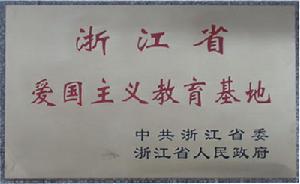 浙江省
爱国主义教育基地
中共浙江省委
浙江省人民政府